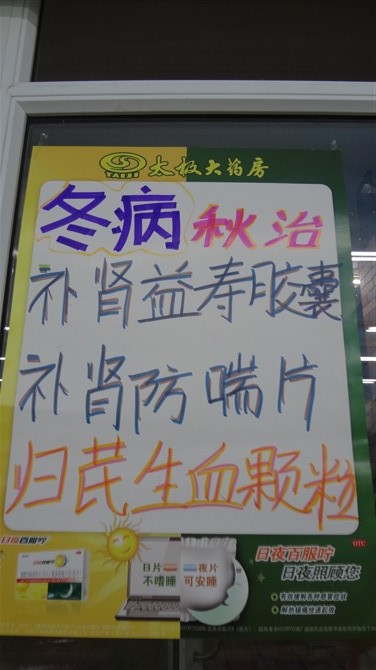 TAIJI 太极大药房
冬病秋治
补肾益寿胶囊
补肾防喘片
归芪生血颗粒
日夜百服咛
日片 夜片
不嗜睡 可安睡
OTC
日夜百服咛
日夜照顾您